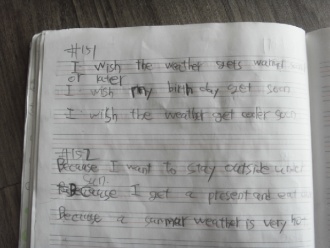 #151
I wish the weather gets
or later
I wish my birthday get soon
I wish the weather get colder soon
#152
Because I want to stay outside
Because I get a present and eat
Because a summer weather is very